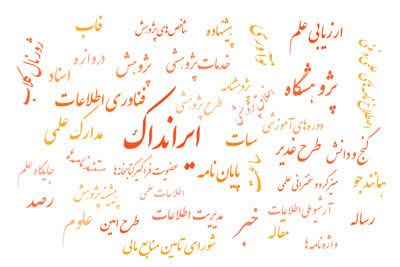 ارزیابی علم
پیشنهاده
شاخص‌های پژوهش
فاب
نوآوری
ژورنال کلاب
خدمات پژوهشی
پژوهش
دروازه
اسناد
پژوهشگاه
پژوهشنامه
طرح پژوهشی
فناوری اطلاعات
دوره‌های آموزشی
ایرانداک
مدارک علمی
گنج و دانش
طرح غدیر
سات
همانندجو
پایان نامه
عضویت فراگیر کتابخانه‌ها
جایگاه علم
میزگرد و سخنرانی علمی
اطلاعات علمی
پیشینه پژوهش
رصد
رساله
آرشیو ملی اطلاعات
خبر
مدیریت اطلاعات
طرح امین
علوم
مقاله
واژه‌نامه‌ها
شورای تامین منابع مالی